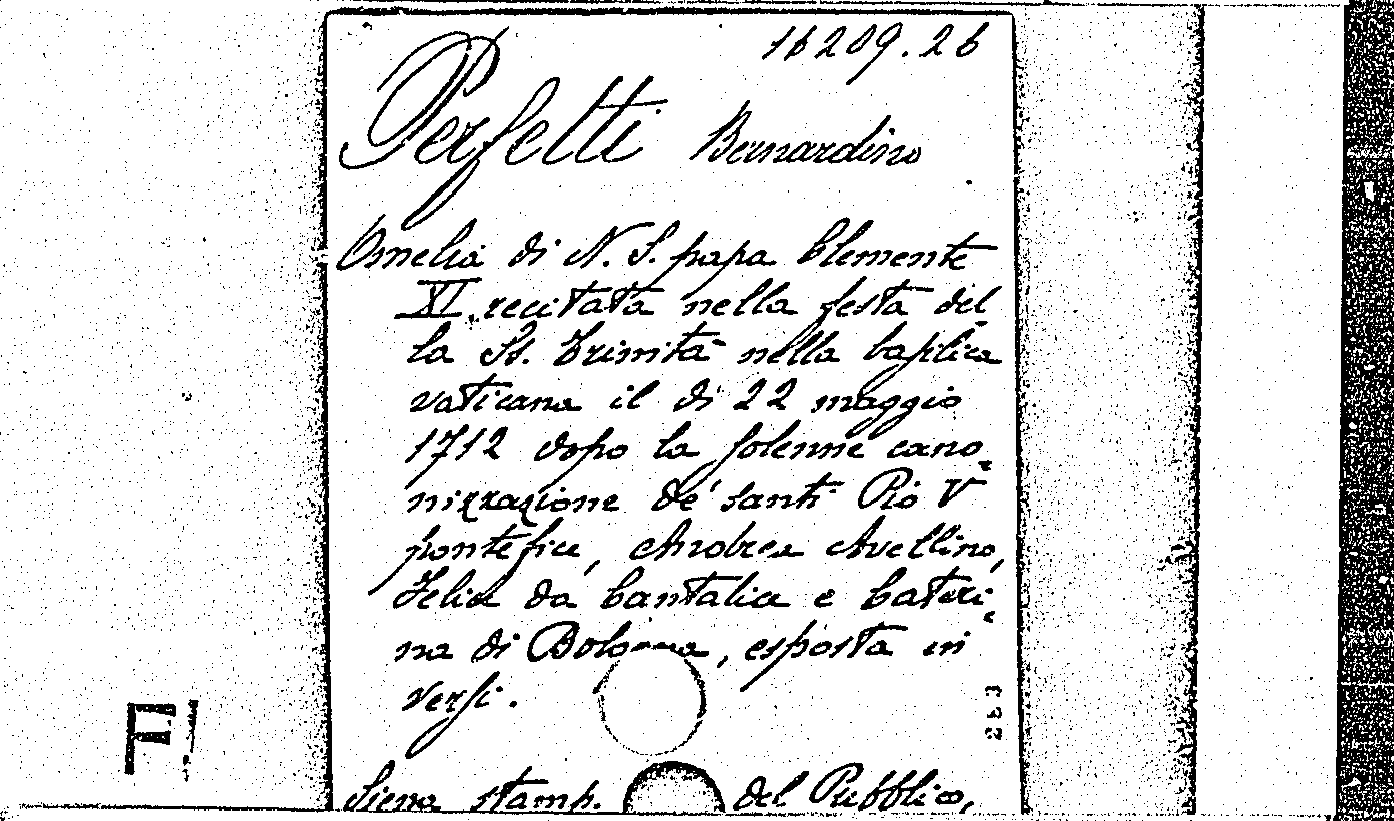 16209.26
Perfetti Bernardino
Omelia di N. S. papa Clemente
XI, recitata nella festa del
la SS. Trinità nella basilica
vaticana il di 22 maggio
1712 dopo la solenne cano-
nizzazione de' santi Pio V
pontefice, Andrea Avellino,
Felice da Cantalice e Cateri-
na di Bologna, esposta in
versi.
Siena stamp. del Pubblico,
253